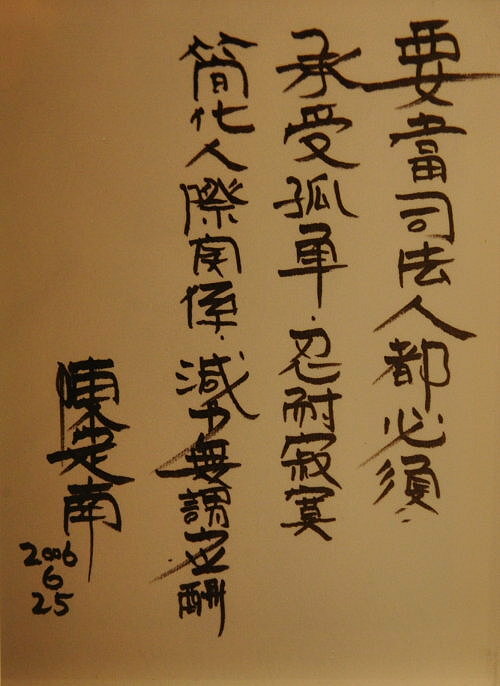 要當司法人都必須.
承受孤單.忍耐寂寞
簡化人際関係.減少無謂应酬
陳定南
2006
6
25